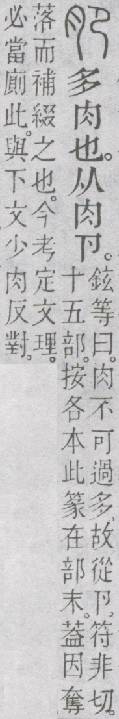 多肉也。从肉卪。鉉等曰。肉不可過多。故從卪。符非切。
十五部。按各本此篆在部末。蓋因奪
落而補綴之也。今考定文理。
必當廁此。與下文少肉反對。